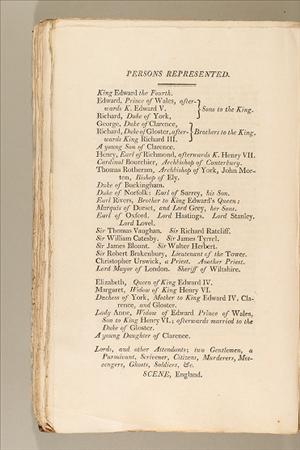 PERSONS REPRESENTED.
King Edward the Fourth.
Edward, Prince of Wales, after-
wards K. Edward V.
Sons to the King.
Richard, Duke of York,
George, Duke of Clarence,
Richard, Duke of Gloster, after-
Brothers to the King.
wards King Richard III.
A young Son of Clarence.
Henry, Earl of Richmond, afterwards K. Henry VII.
Cardinal Bourchier, Archbishop of Canterbury.
Thomas Rotheram, Archbishop of York, John Mor-
ton, Bishop of Ely.
Duke of Buckingham.
Duke of Norfolk: Earl of Surrey, his Son.
Earl Rivers, Brother to King Edward's Queen:
Marquis of Dorset, and Lord Grey, her Sons.
Earl of Oxford. Lord Hastings. Lord Stanley.
Lord Lovel.
Sir Thomas Vaughan. Sir Richard Ratcliff.
Sir William Catesby. Sir James Tyrrel.
Sir James Blount. Sir Walter Herbert.
Sir Robert Brakenbury, Lieutenant of the Tower.
Christopher Urswick, a Priest. Another Priest.
Lord Mayor of London. Sheriff of Wiltshire.
Elizabeth, Queen of King Edward IV.
Margaret, Widow of King Henry VI.
Duchess of York, Mother to King Edward IV. Cla-
rence, and Gloster.
Lady Anne, Widow of Edward Prince of Wales,
Son to King Henry VI.; afterwards married to the
Duke of Gloster.
A young Daughter of Clarence.
Lords, and other Attendants; two Gentlemen, a
Pursuivant, Scrivener, Citizens, Murderers, Mes-
sengers, Ghosts, Soldiers, &c.
SCENE, England.